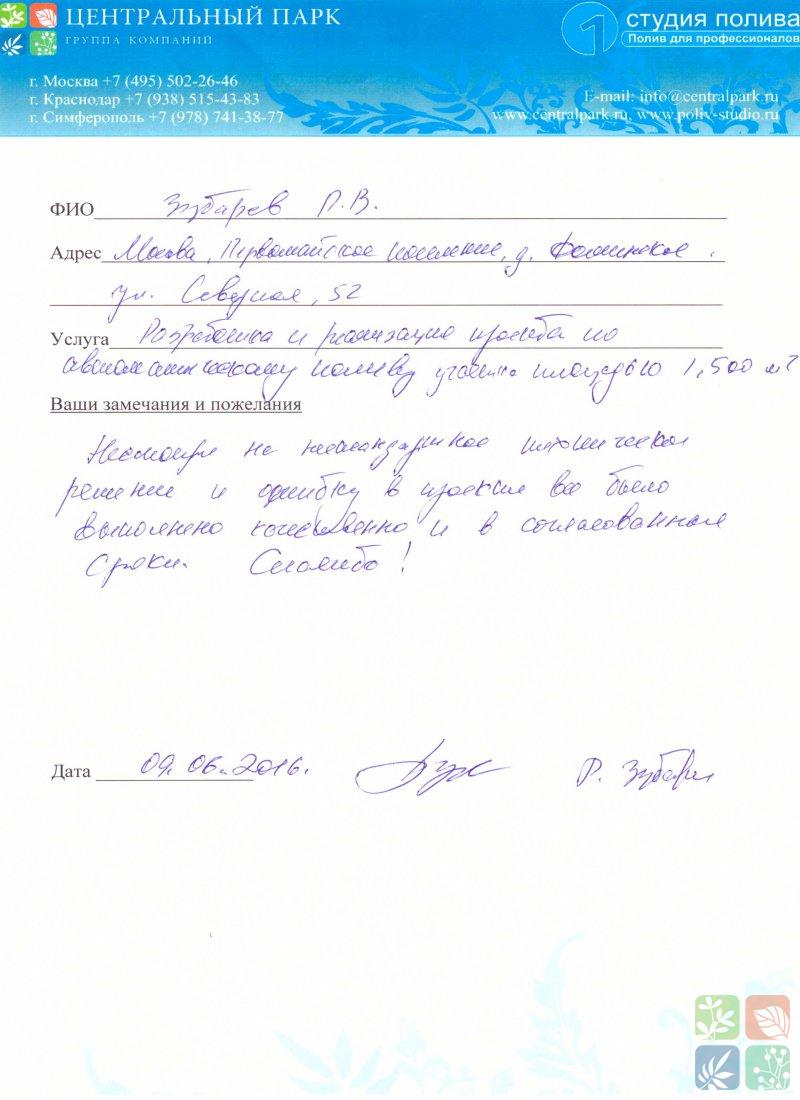 ЦЕНТРАЛЬНЫЙ ПАРК
ГРУППА КОМПАНИЙ
1 студия полива
Полив для профессионалов
г. Москва +7 (495) 502-26-46
г. Краснодар +7 (938) 515-43-83
г. Симферополь +7 (978) 741-38-77
E-mail: info@centralpark.ru
www.centralpark.ru, www.poliv-studio.ru
ФИО Зубарев Р.В.
Адрес Москва, Первомайское поселение, д. Фоминское,
ул. Северная, 52
Услуга Разработка и реализация проекта по
автоматическому поливу участка площадью 1,500 м²
Ваши замечания и пожелания
Несмотря на нестандартное техническое
решение и ошибку в проекте все было
выполнено качественно и в согласованные
сроки. Спасибо!
Дата 09.06.2016. Р. Зубарев